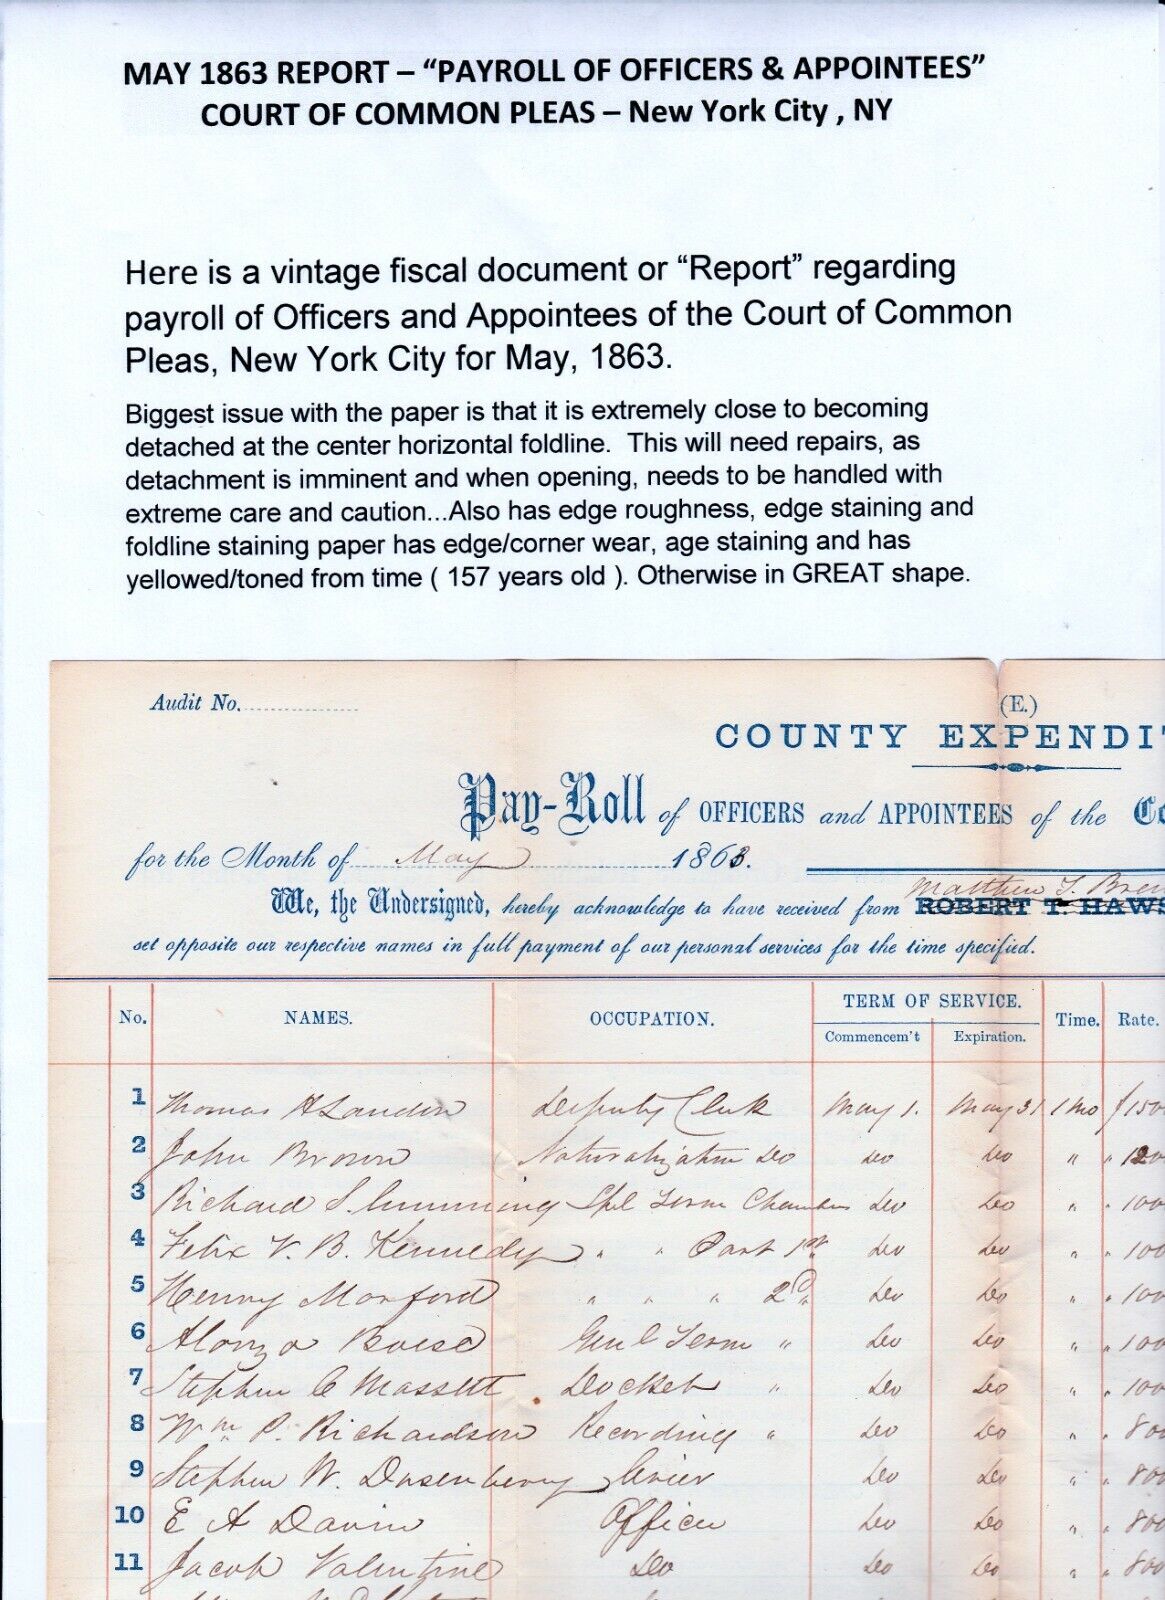 MAY 1863 REPORT – “PAYROLL OF OFFICERS & APPOINTEES”
COURT OF COMMON PLEAS – New York City , NY
Here is a vintage fiscal document or “Report” regarding
payroll of Officers and Appointees of the Court of Common
Pleas, New York City for May, 1863.
Biggest issue with the paper is that it is extremely close to becoming
detached at the center horizontal foldline. This will need repairs, as
detachment is imminent and when opening, needs to be handled with
extreme care and caution...Also has edge roughness, edge staining and
foldline staining paper has edge/corner wear, age staining and has
yellowed/toned from time ( 157 years old ). Otherwise in GREAT shape.
Audit No.
(E.)
COUNTY EXPENDIT
Pay-Roll of OFFICERS and APPOINTEES of the Co
for the Month of May 1863.
Matthew T. Bren
We, the Undersigned, hereby acknowledge to have received from ROBERT T. HAWS
set opposite our respective names in full payment of our personal services for the time specified.
No. NAMES. OCCUPATION. TERM OF SERVICE. Time. Rate.
Commencem't Expiration.
1 Thomas H Landon Deputy Clerk May 1. May 31 1 Mo $150
2 John Brown Naturalization Do Do Do " " 120
3 Richard S. Cumming Spl Term Chambers Do Do " " 100
4 Felix V. B. Kennedy " " Part 1st Do Do " " 100
5 Henry Morford " " " 2d " Do Do " " 100
6 Alonzo Boise Genl Term " Do Do " " 100
7 Stephen C Massett Docket " Do Do " " 100
8 Wm P. Richardson Recording " Do Do " " 800
9 Stephen W. Dusenberry Crier Do Do " " 800
10 E A Officer Do Do " " 800
11 Jacob Valentine Do Do Do " " 800